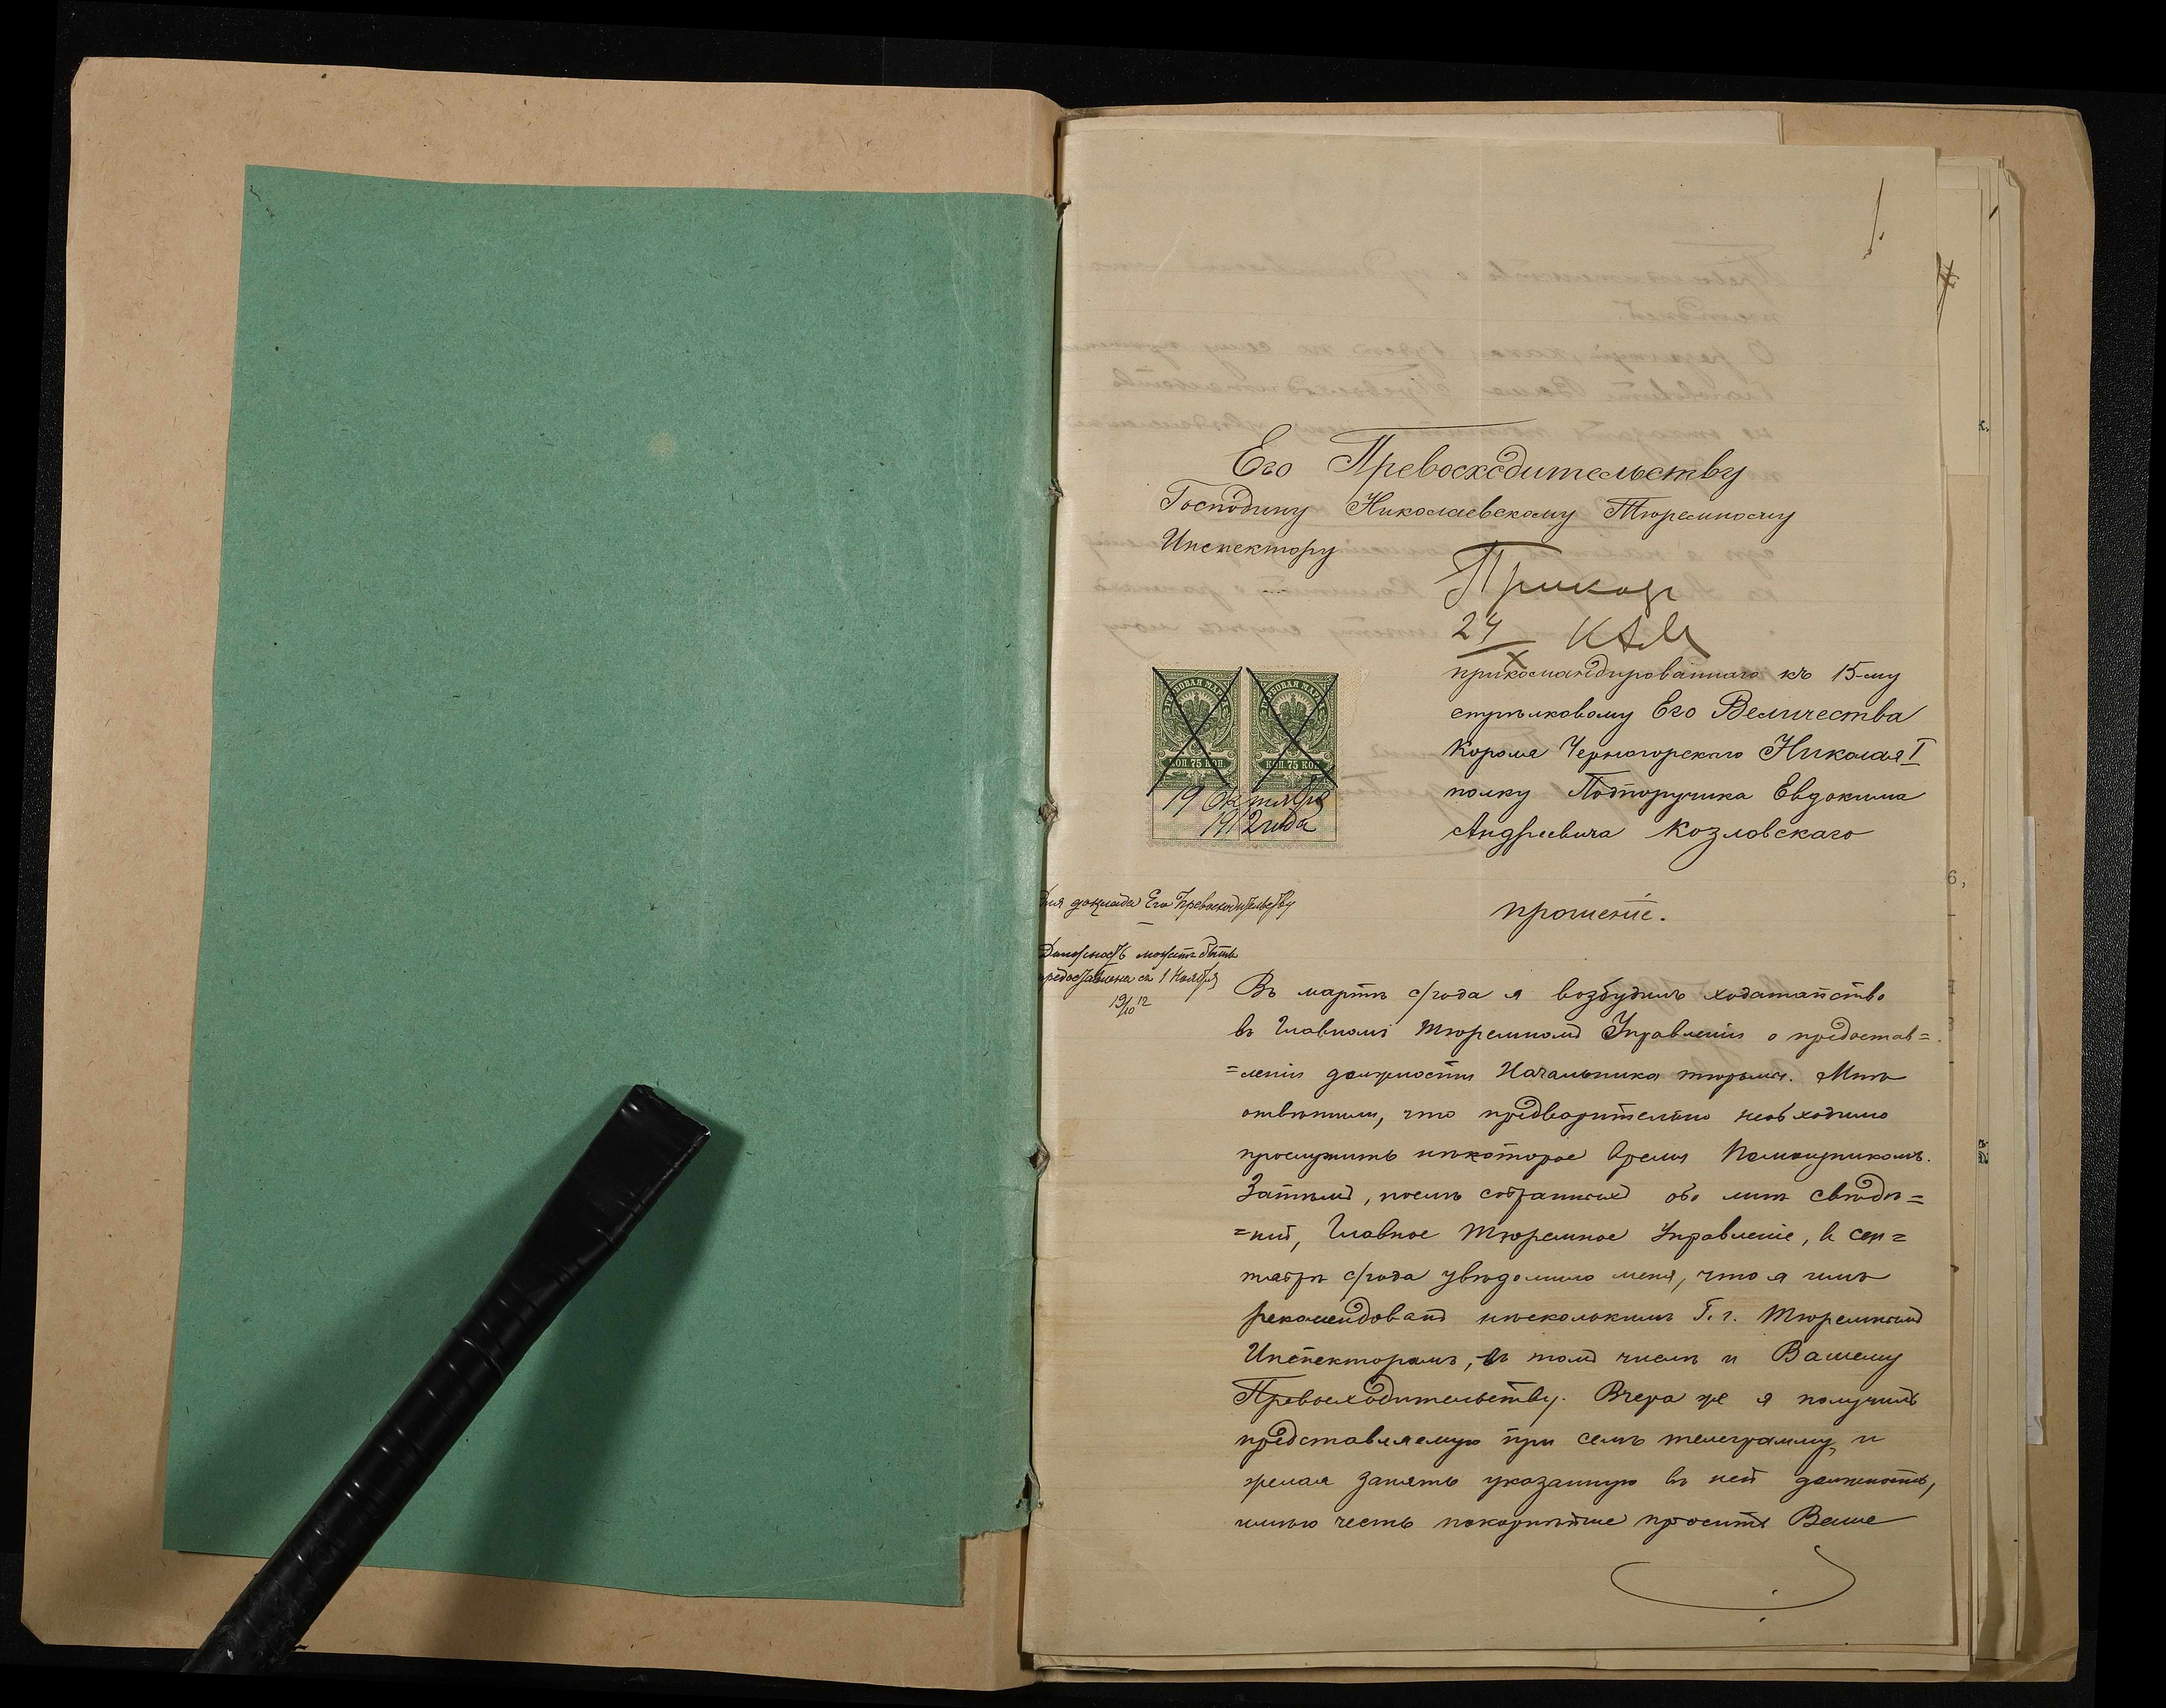 1.
Его Превосходительству
Господину Николаевскому Тюремному
Инспектору
Приказ
24
X
прикомандированнаго къ 15-му
стрѣлковому Его Величества
Короля Черногорскаго Николая I
полку Подпоручика Евдокима
Андреевича Козловскаго
ГЕРБОВАЯ МАРКА
КОП. 75 КОП.
ГЕРБОВАЯ МАРКА
КОП. 75 КОП.
19 Октября
1912 года
Для доклада Его Превосходительству
прошеніе.
Должность можетъ быть
предоставлена съ 1 Ноября
19/10 12
Въ мартѣ с/года я возбудилъ ходатайство
въ Главномъ Тюремномъ Управленіи о предостав=
=леніи должности Начальника тюрьмы. Мнѣ
отвѣтили, что предварительно необходимо
прослужить нѣкоторое время Помощникомъ.
Затѣмъ, послѣ собранныхъ обо мнѣ свѣдѣ=
=ній, Главное Тюремное Управленіе, въ сен=
тябрѣ с/года увѣдомило меня, что я имъ
рекомендованъ нѣсколькимъ Г.г. Тюремнымъ
Инспекторамъ, въ томъ числѣ и Вашему
Превосходительству. Вчера же я получилъ
представляемую при семъ телеграмму, и
желая занять указанную въ ней должность,
имѣю честь покорнѣйше просить Ваше